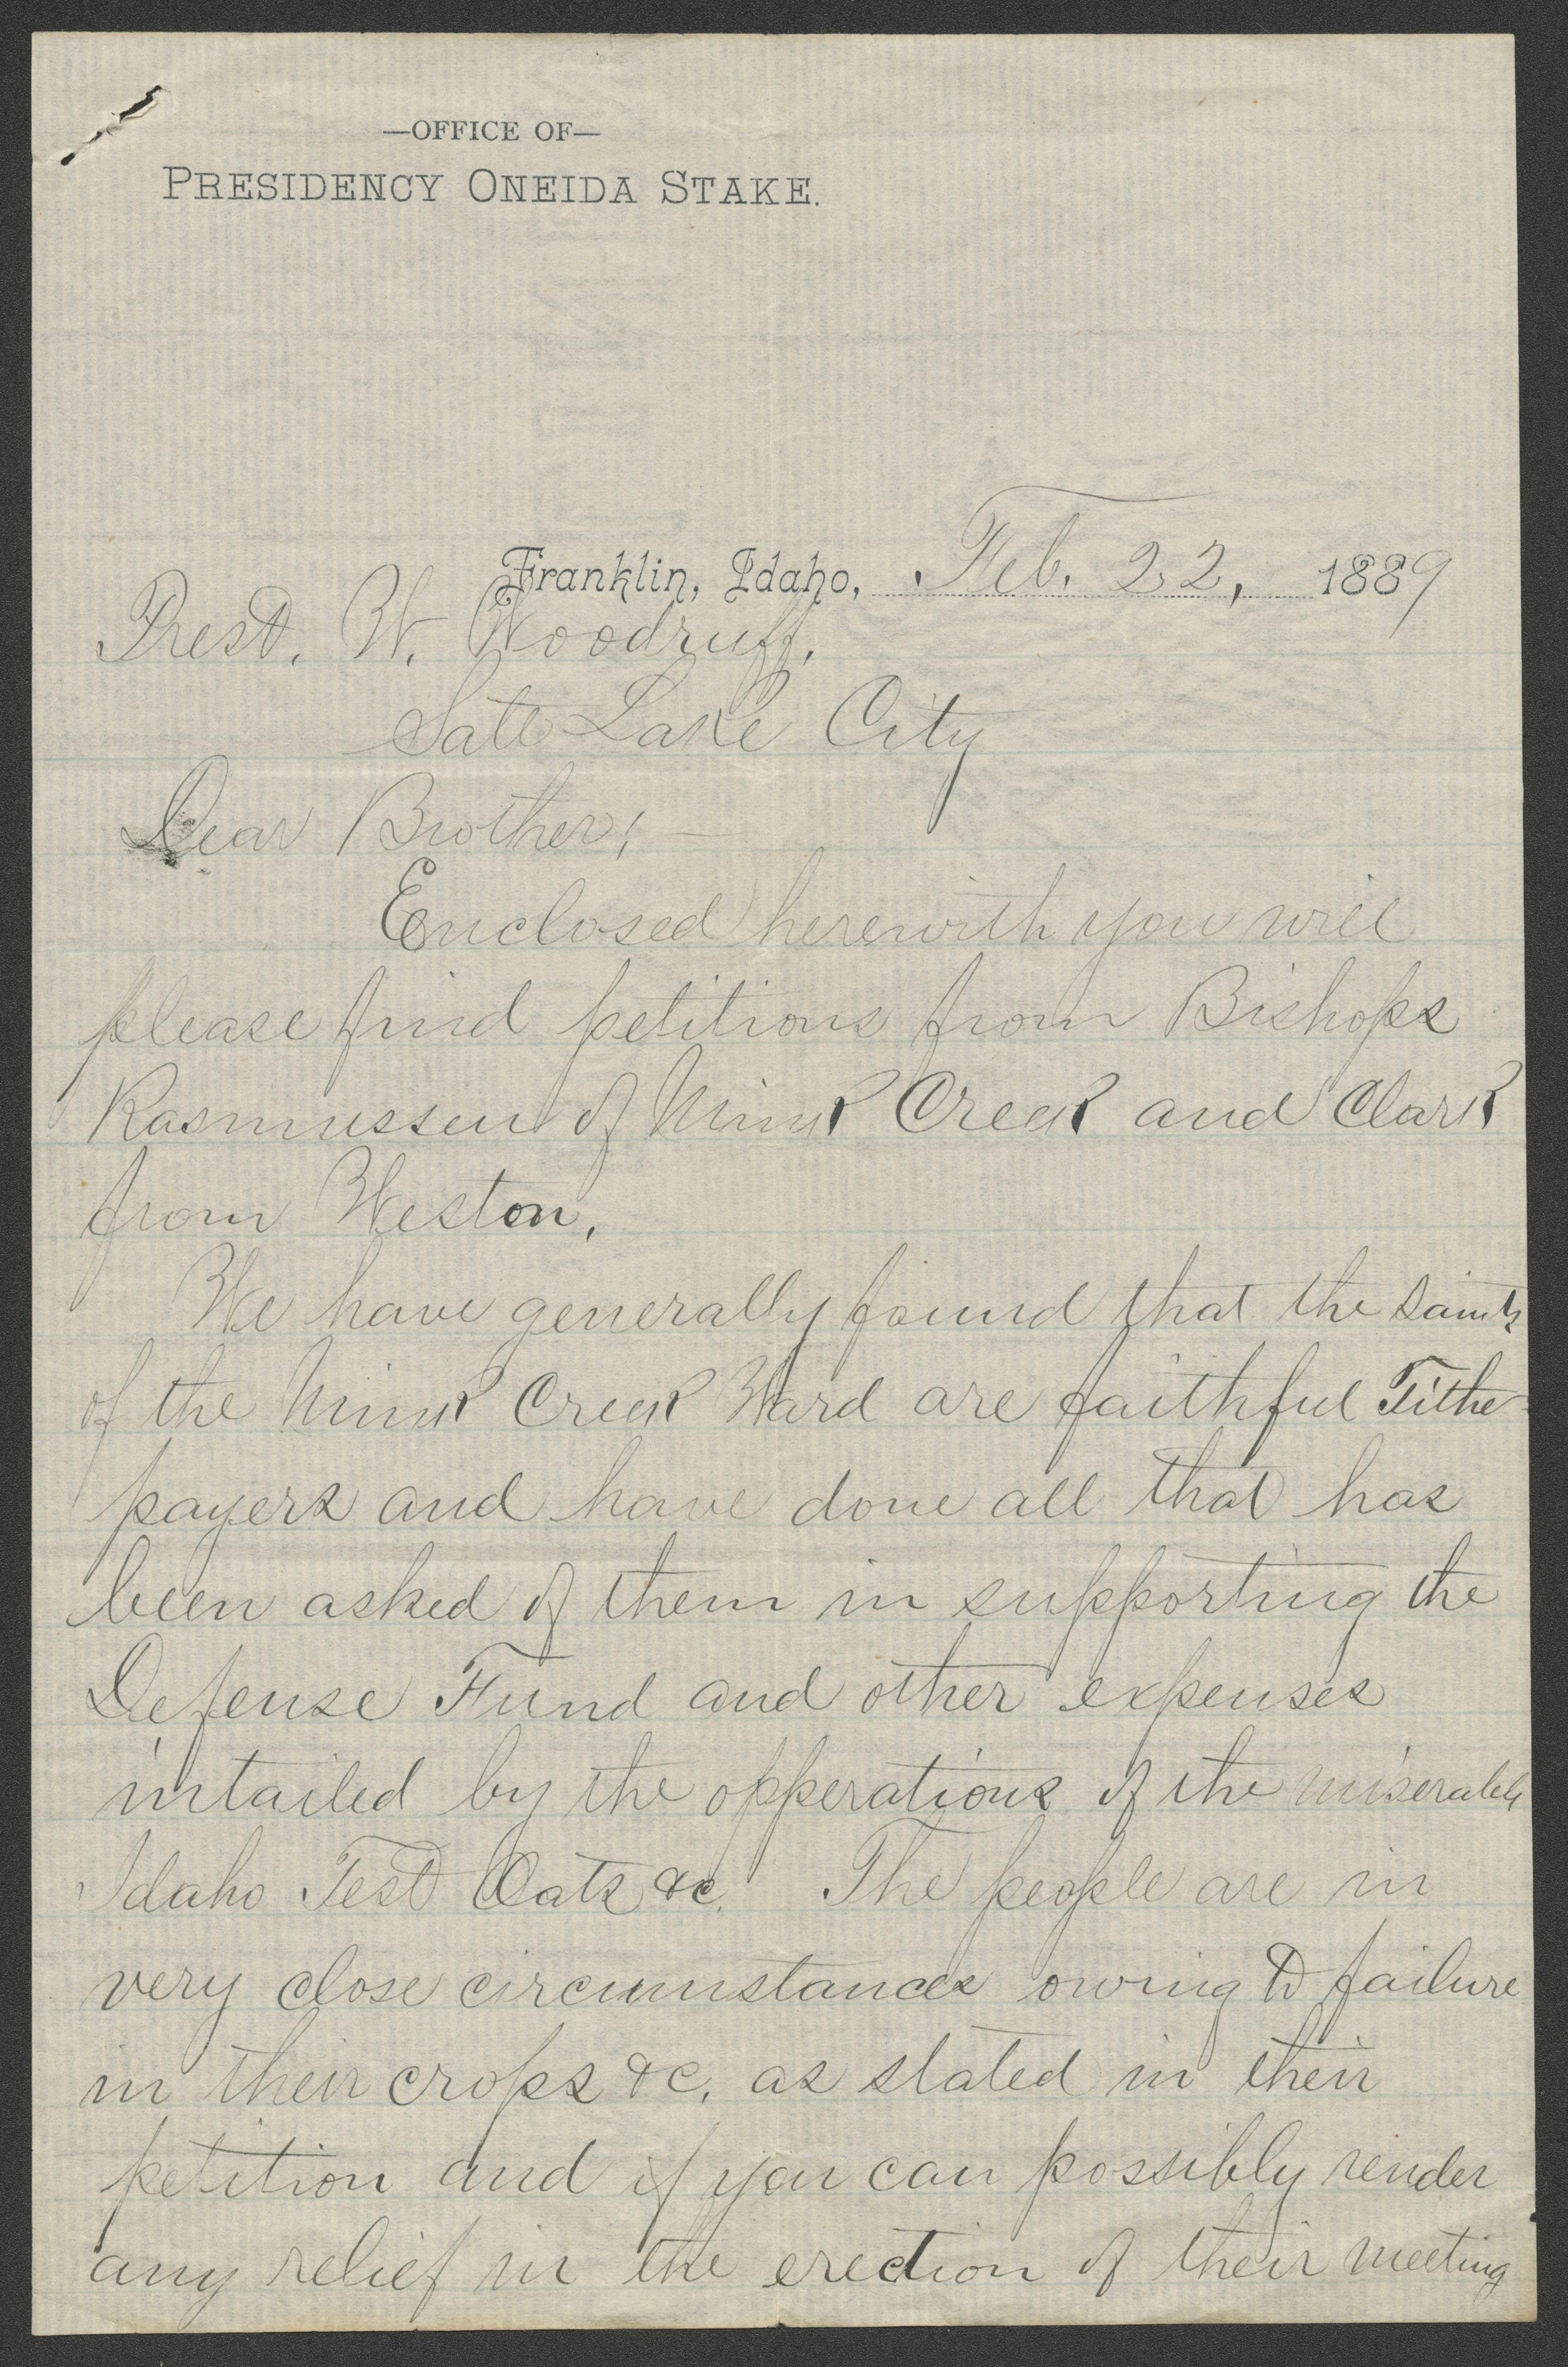 —OFFICE OF—
PRESIDENCY ONEIDA STAKE.
Franklin, Idaho, Feb. 22, 1889
Prest. W. Woodruff.
Salt Lake City
Dear Brother; —
Enclosed herewith you will
please find petitions from Bishops
Rasmussen of Mink Creek and Clark
from Weston.
We have generally found that the saints
of the Mink Creek Ward are faithful Tithe
payers and have done all that has
been asked of them in supporting the
Defense Fund and other expenses
intailed by the opperations of the miserable
Idaho Test Oats &c. The people are in
very close circumstances owing to failure
in their crops &c. as stated in their
petition and if you can possibly render
any relief in the erection of their meeting